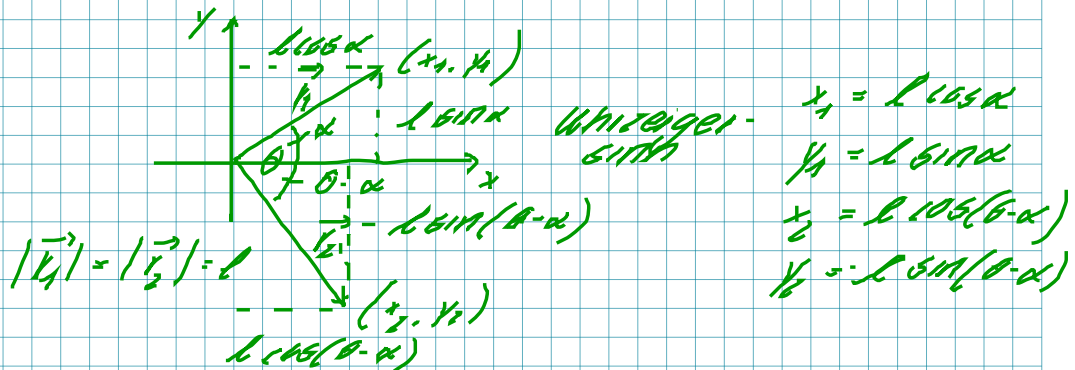 y
l cos α (x₁, y₁)
r₁
α l sin α
θ
θ - α x
r₂ - l sin(θ-α)
|r₁| = |r₂| = l
(x₂, y₂)
l cos(θ-α)
Uhrzeiger-
sinn
x₁ = l cos α
y₁ = l sin α
x₂ = l cos(θ-α)
y₂ = -l sin(θ-α)